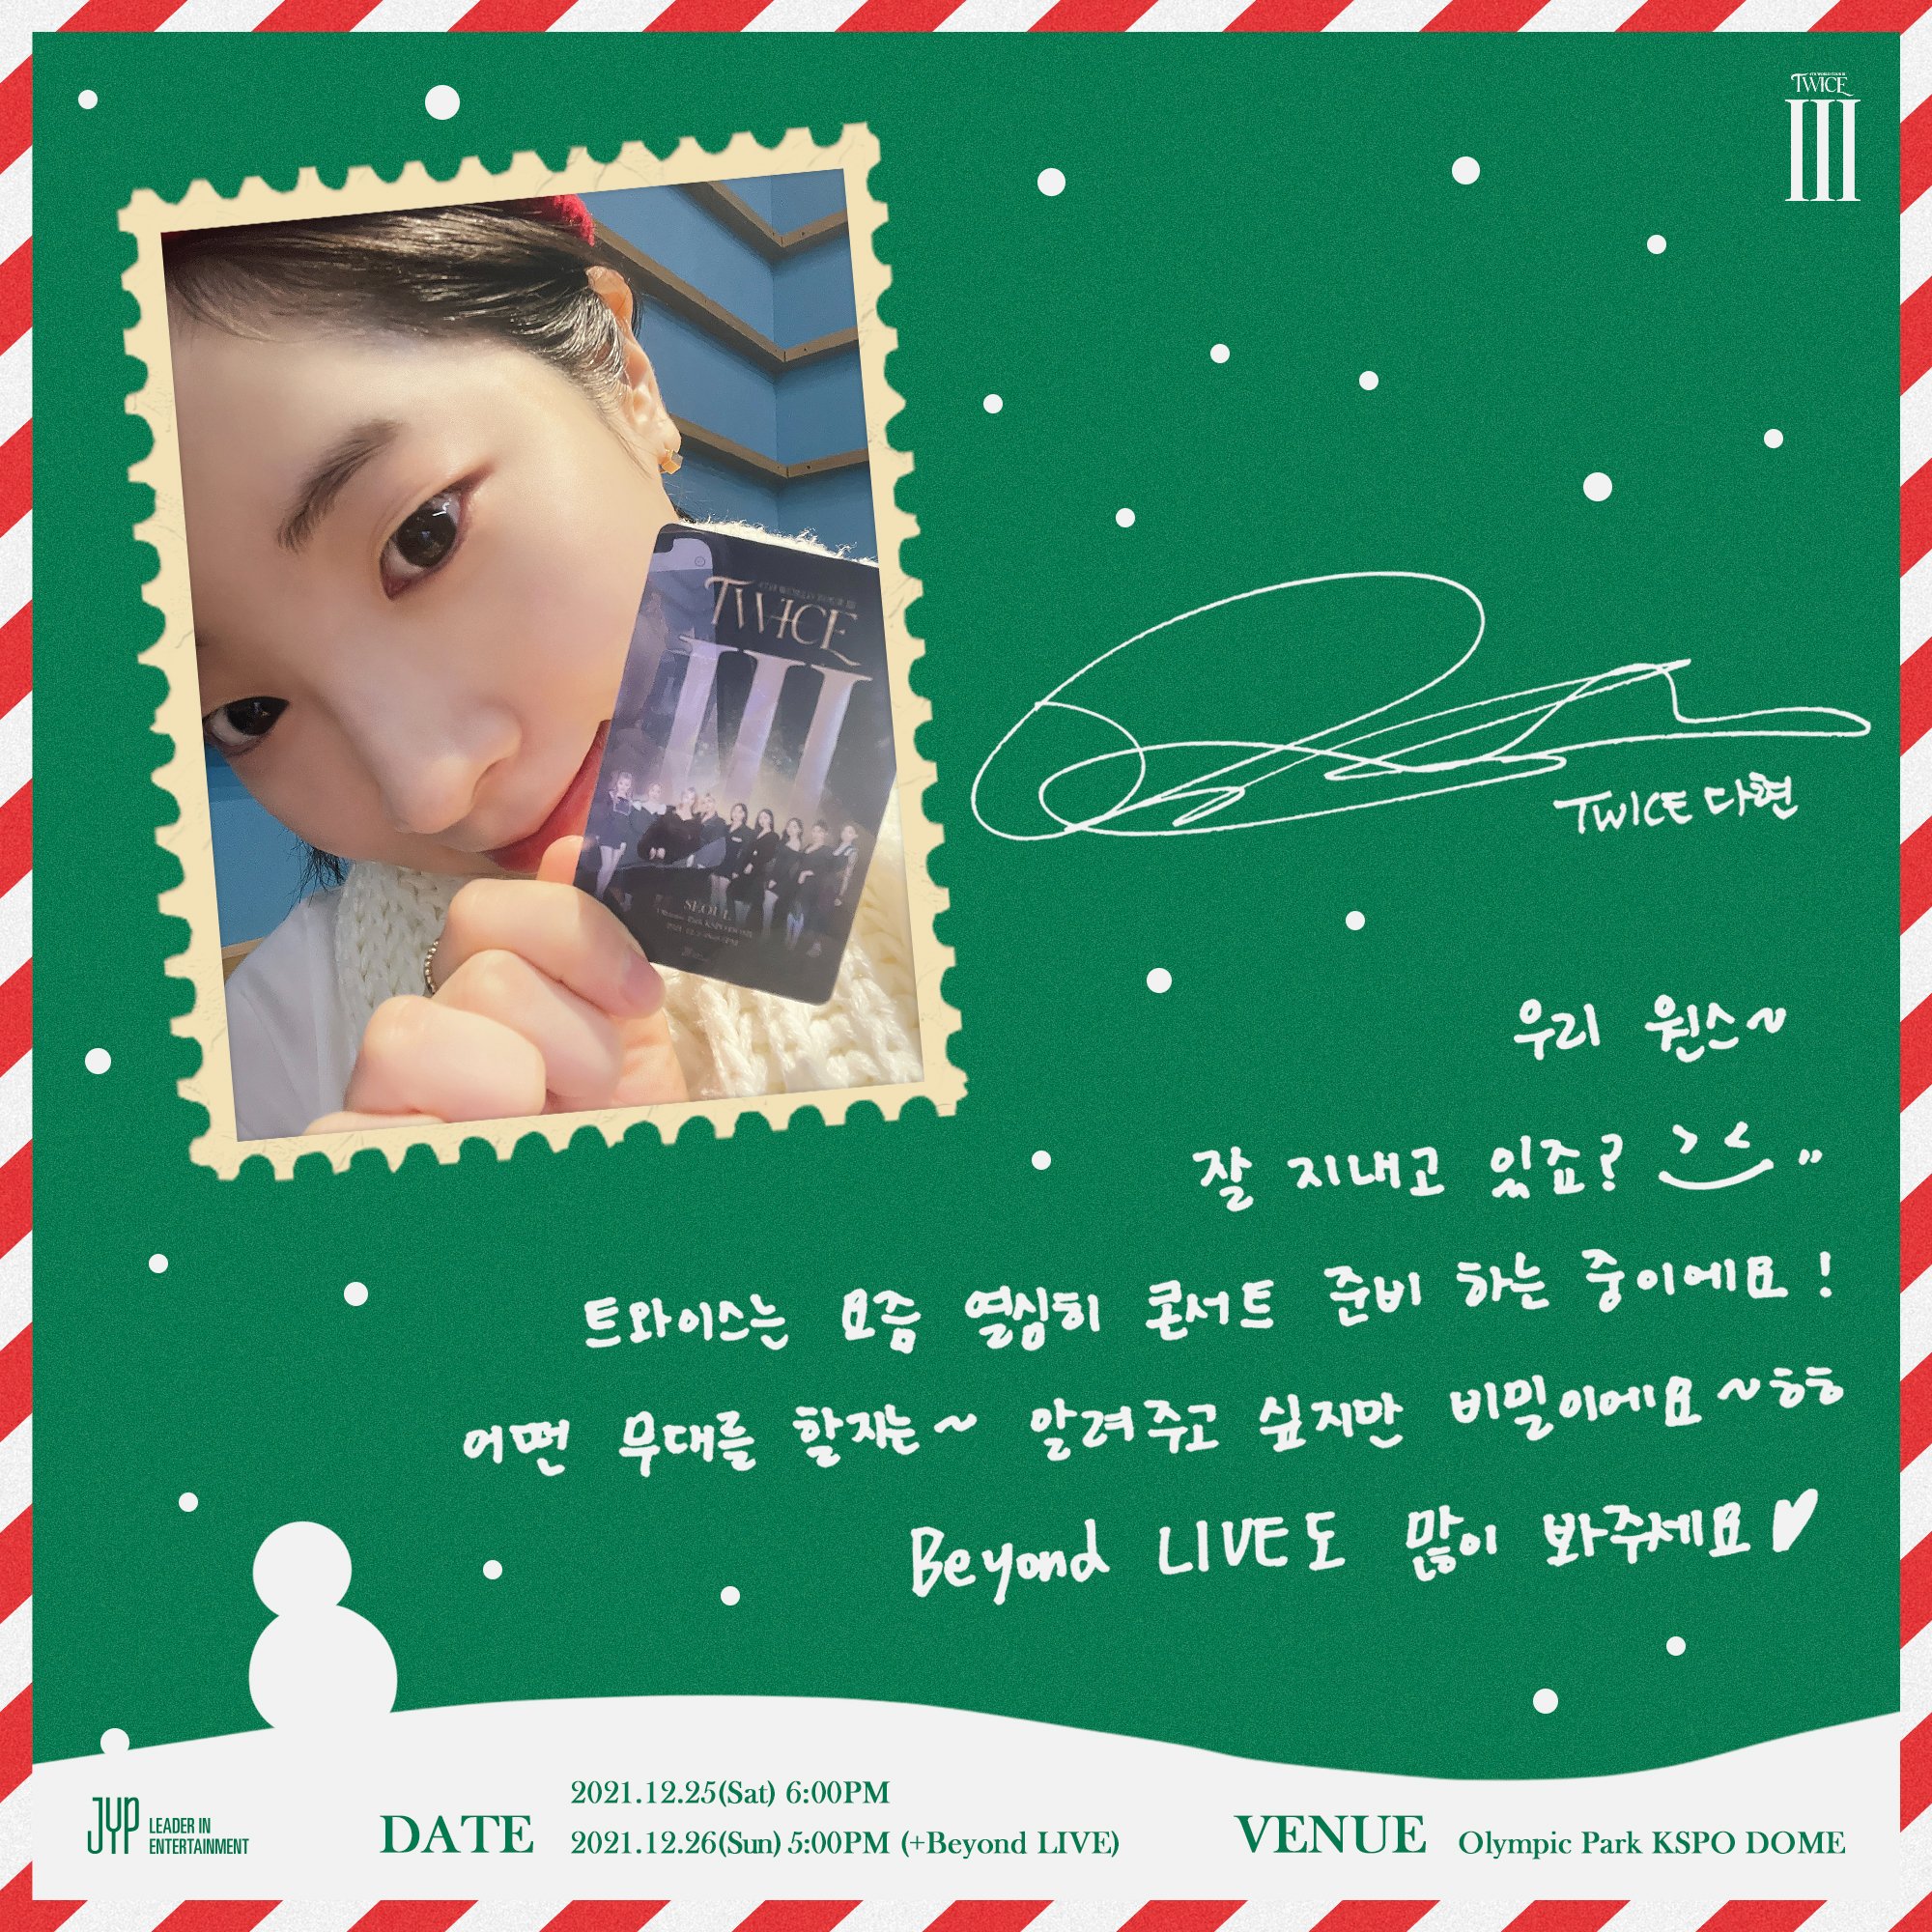 TWICE
III
4TH WORLD TOUR III
TWICE
III
SEOUL
Olympic Park KSPO DOME
TWICE 다현
우리 원스~
잘 지내고 있죠? ><
트와이스는 요즘 열심히 콘서트 준비 하는 중이에요!
어떤 무대를 할지는~ 알려주고 싶지만 비밀이에요~ㅎㅎ
Beyond LIVE도 많이 봐주세요♥
JYP LEADER IN
ENTERTAINMENT
DATE
2021.12.25(Sat) 6:00PM
2021.12.26(Sun) 5:00PM (+Beyond LIVE)
VENUE Olympic Park KSPO DOME